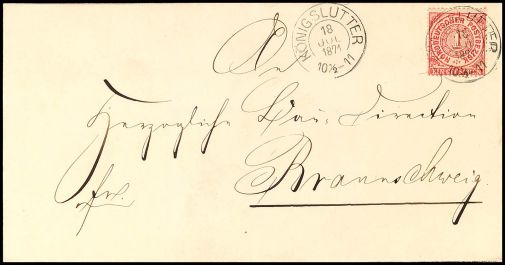 KÖNIGSLUTTER
18
JUL
1871
10½-11
NORDDEUTSCHER POSTBEZIRK
1
An
Herzogliche Bau-Direction
fr.
Braunschweig.